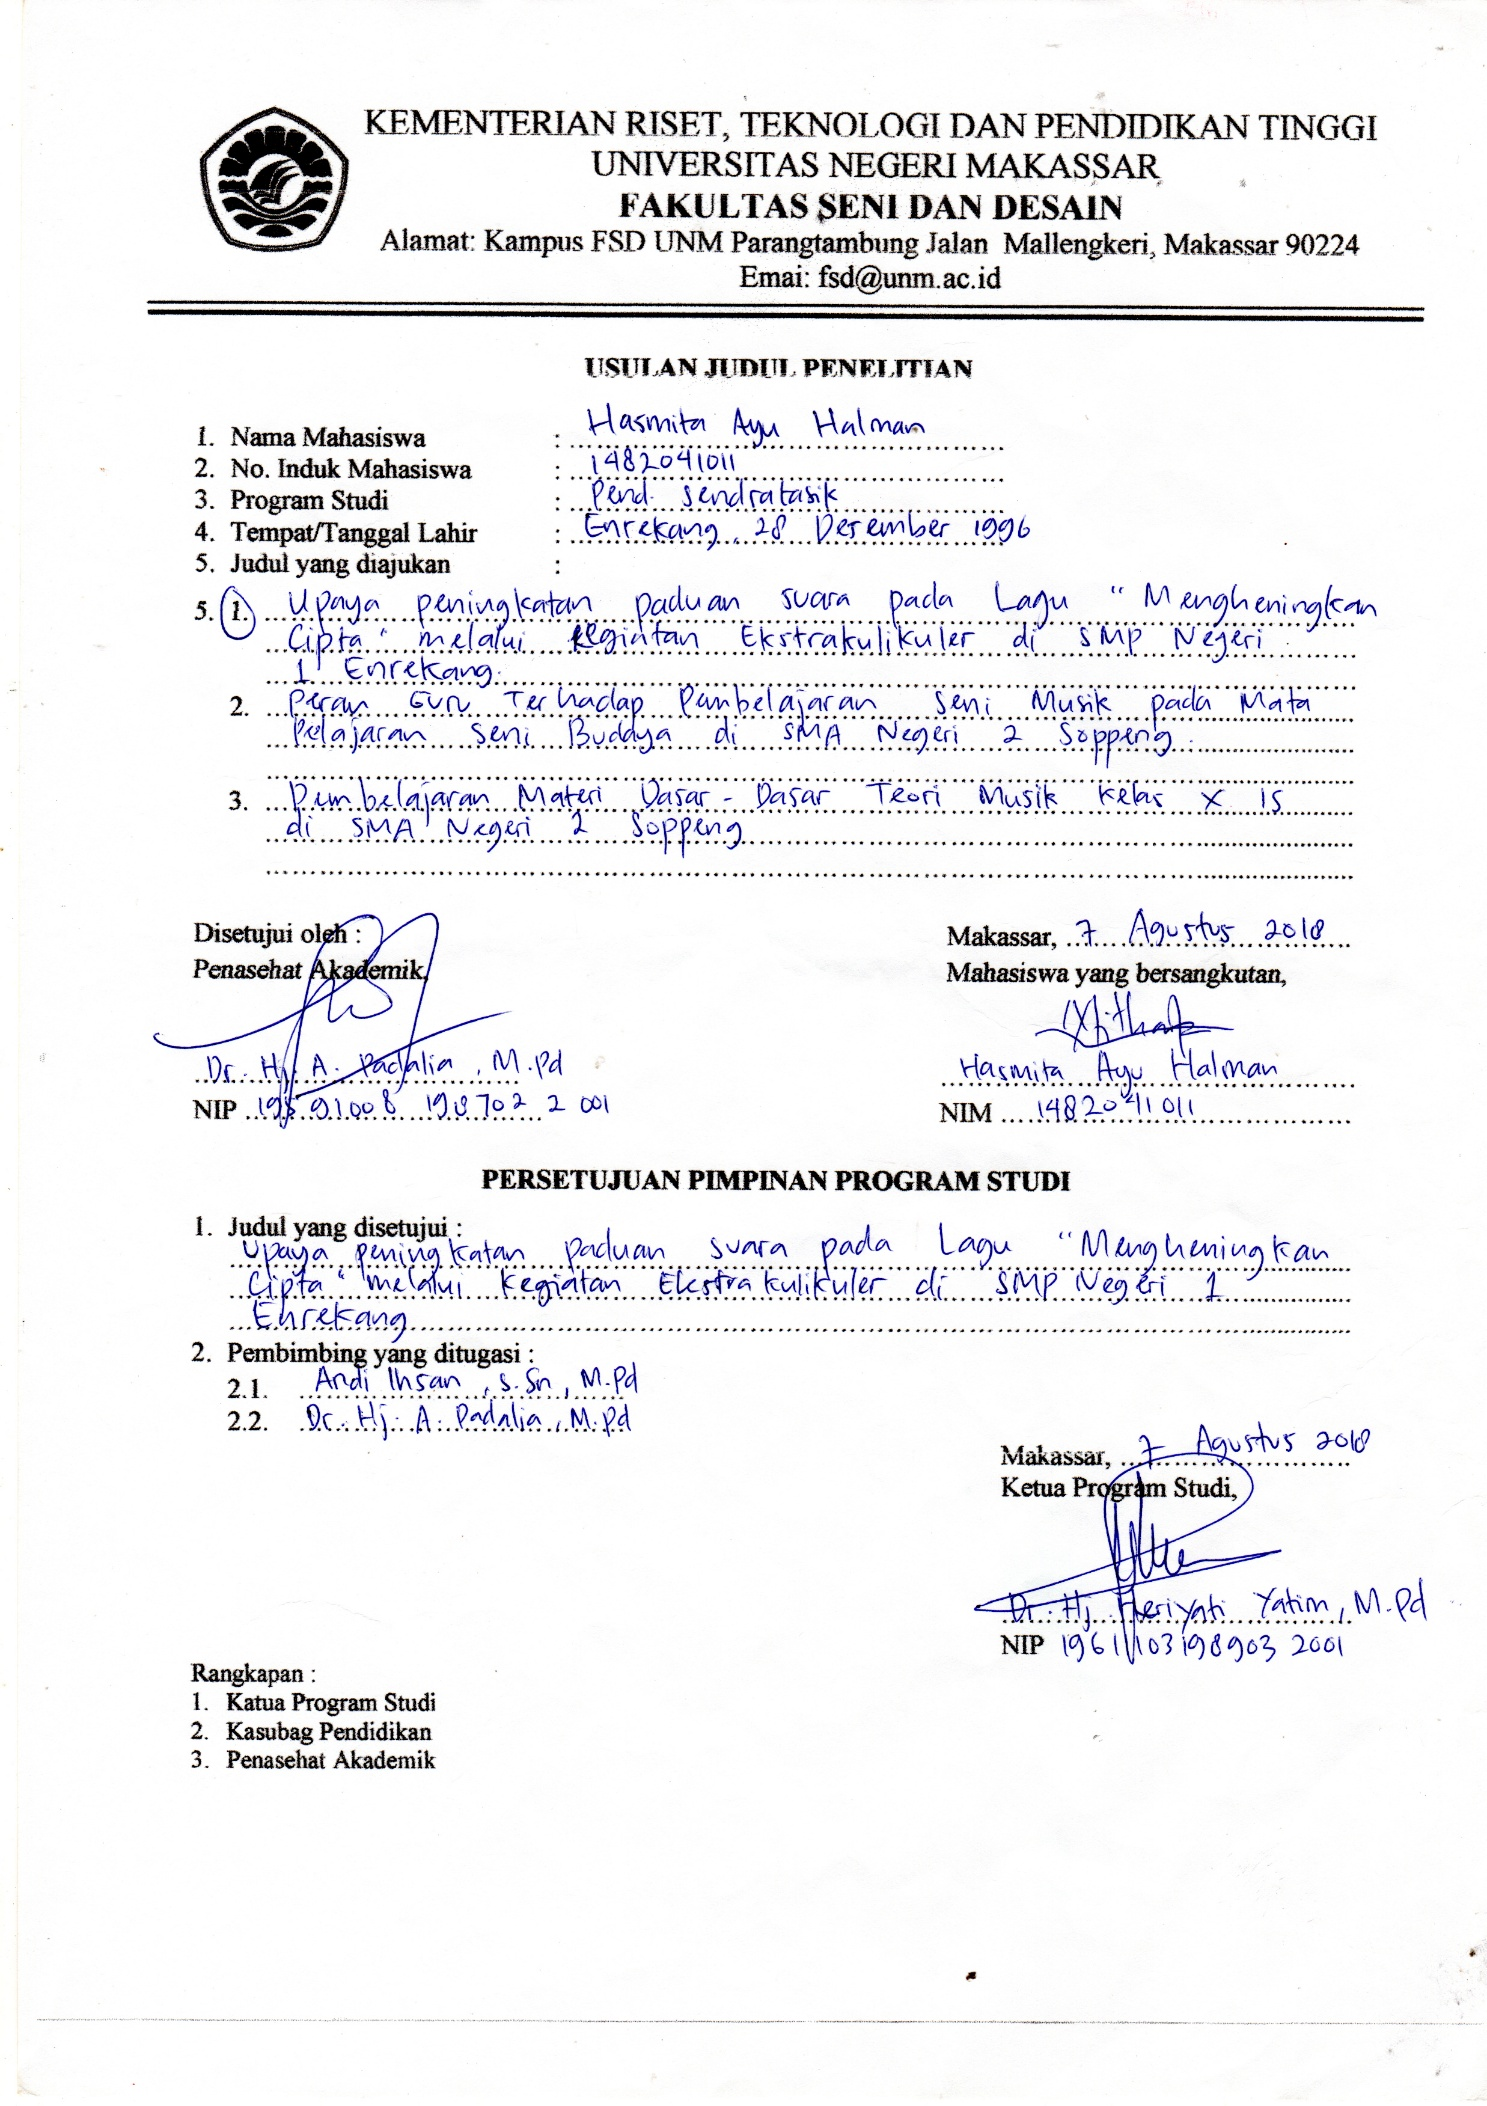 KEMENTERIAN RISET, TEKNOLOGI DAN PENDIDIKAN TINGGI
UNIVERSITAS NEGERI MAKASSAR
FAKULTAS SENI DAN DESAIN
Alamat: Kampus FSD UNM Parangtambung Jalan Mallengkeri, Makassar 90224
Emai: fsd@unm.ac.id
USULAN JUDUL PENELITIAN
1. Nama Mahasiswa : Hasmita Ayu Halman
2. No. Induk Mahasiswa : 1482041011
3. Program Studi : Pend. Sendratasik
4. Tempat/Tanggal Lahir : Enrekang, 28 Desember 1996
5. Judul yang diajukan :
5. 1. Upaya peningkatan paduan suara pada Lagu "Mengheningkan
Cipta" melalui kegiatan Ekstrakulikuler di SMP Negeri
1 Enrekang.
2. Peran Guru Terhadap Pembelajaran Seni Musik pada Mata
Pelajaran Seni Budaya di SMA Negeri 2 Soppeng.
3. Pembelajaran Materi Dasar-Dasar Teori Musik kelas X IS
di SMA Negeri 2 Soppeng
Disetujui oleh :
Penasehat Akademik,
Dr. Hj. A. Padalia, M.Pd
NIP 19591008 198702 2 001
Makassar, 7 Agustus 2018
Mahasiswa yang bersangkutan,
Hasmita Ayu Halman
NIM 1482041011
PERSETUJUAN PIMPINAN PROGRAM STUDI
1. Judul yang disetujui :
Upaya peningkatan paduan suara pada Lagu "Mengheningkan
Cipta" melalui Kegiatan Ekstrakulikuler di SMP Negeri 1
Enrekang
2. Pembimbing yang ditugasi :
2.1. Andi Ihsan, S.Sn, M.Pd
2.2. Dr. Hj. A. Padalia, M.Pd
Makassar, 7 Agustus 2018
Ketua Program Studi,
Dr. Hj. Heriyati Yatim, M.Pd
NIP 19611103198903 2001
Rangkapan :
1. Katua Program Studi
2. Kasubag Pendidikan
3. Penasehat Akademik